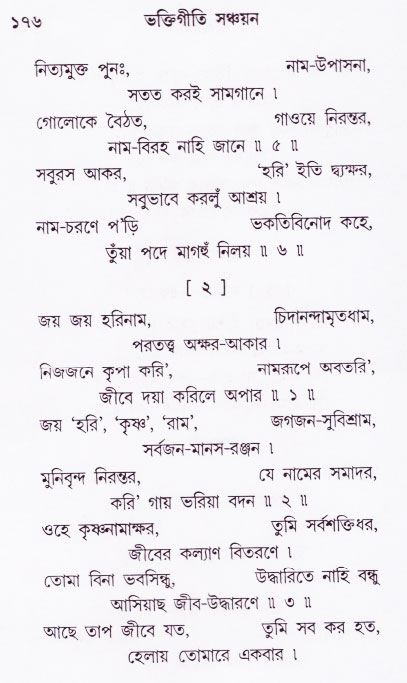 ১৭৬ ভক্তিগীতি সঞ্চয়ন
নিত্যমুক্ত পুনঃ, নাম-উপাসনা,
সতত করই সামগানে ।
গোলোকে বৈঠত, গাওয়ে নিরন্তর,
নাম-বিরহ নাহি জানে ॥ ৫ ॥
সবুরস আকর, ‘হরি’ ইতি দ্ব্যক্ষর,
সবুভাবে করলুঁ আশ্রয় ।
নাম-চরণে প’ড়ি ভকতিবিনোদ কহে,
তুঁয়া পদে মাগহুঁ নিলয় ॥ ৬ ॥
[ ২ ]
জয় জয় হরিনাম, চিদানন্দামৃতধাম,
পরতত্ত্ব অক্ষর-আকার ।
নিজজনে কৃপা করি’, নামরূপে অবতরি’,
জীবে দয়া করিলে অপার ॥ ১ ॥
জয় ‘হরি’, ‘কৃষ্ণ’, ‘রাম’, জগজন-সুবিশ্রাম,
সর্বজন-মানস-রঞ্জন ।
মুনিবৃন্দ নিরন্তর, যে নামের সমাদর,
করি’ গায় ভরিয়া বদন ॥ ২ ॥
ওহে কৃষ্ণনামাক্ষর, তুমি সর্বশক্তিধর,
জীবের কল্যাণ বিতরণে ।
তোমা বিনা ভবসিন্ধু, উদ্ধারিতে নাহি বন্ধু
আসিয়াছ জীব-উদ্ধারণে ॥ ৩ ॥
আছে তাপ জীবে যত, তুমি সব কর হত,
হেলায় তোমারে একবার ।